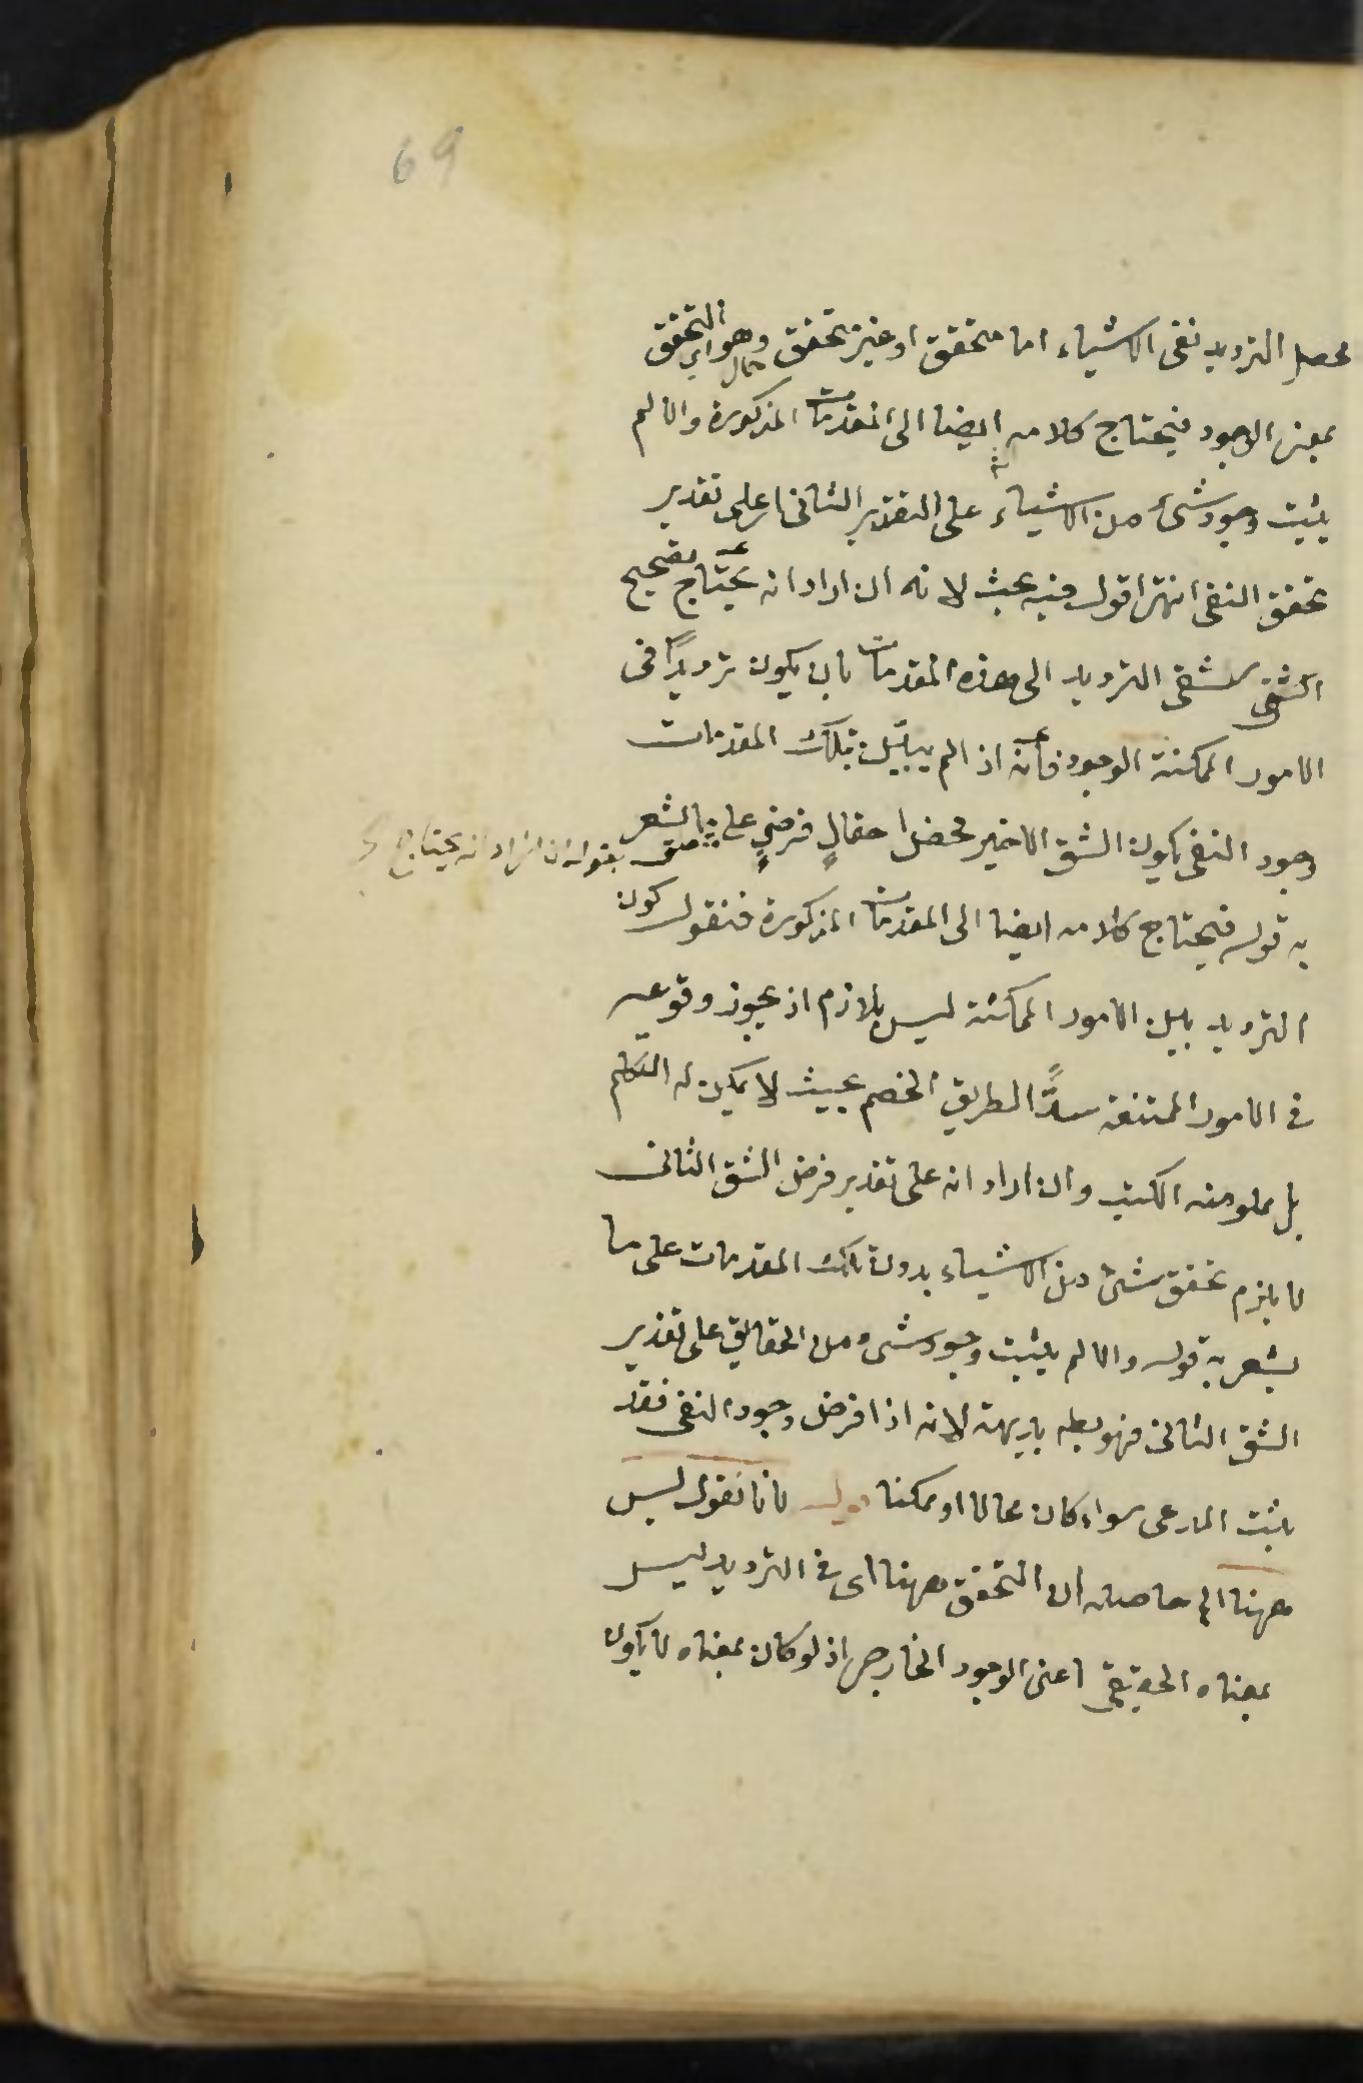 69
محصل الترديد نفى الاشياء اما متحقق او غير متحقق وهو اى التحقق
بمعنى الوجود فيحتاج كلامه ايضا الى المقدمات المذكورة والا لم
يثبت وجود شئ من الاشياء على التقدير الثانى اى على تقدير
تحقق النفى انتهى اقول فيه بحث لانه ان اراد انه يحتاج تصحيح
الشق الترديد الى هذه المقدمات بان يكون ترديدا فى
الامور الممكنة الوجود فأنه اذا لم يبين بتلك المقدمات
وجود النفى يكون الشق الاخير محض احتمالٍ فرضىٍ على ما يشعر
به قوله فيحتاج كلامه ايضا الى المقدمات المذكورة فنقول كون
الترديد بين الامور الممكنة ليس بلازم اذ يجوز وقوعه
فى الامور الممتنعة سدًّا لطريق الخصم بحيث لا يمكن له التكلم
بل مملو منه الكتب وان اراد انه على تقدير فرض الشق الثانى
لا يلزم تحقق شئ من الاشياء بدون تلك المقدمات على ما
يشعر به قوله والا لم يثبت وجود شئ من الحقائق على تقدير
الشق الثانى فهو بط بديهة لانه اذا فرض وجود النفى فقد
يثبت المدعى سواء كان محالا او ممكنا قوله لانا نقول ليس
ههنا الخ حاصله ان التحقق ههنا اى فى الترديد ليس
بمعناه الحقيقى اعنى الوجود الخارجى اذ لو كان بمعناه لا يكون
بقوله ان اراد انه يحتاج